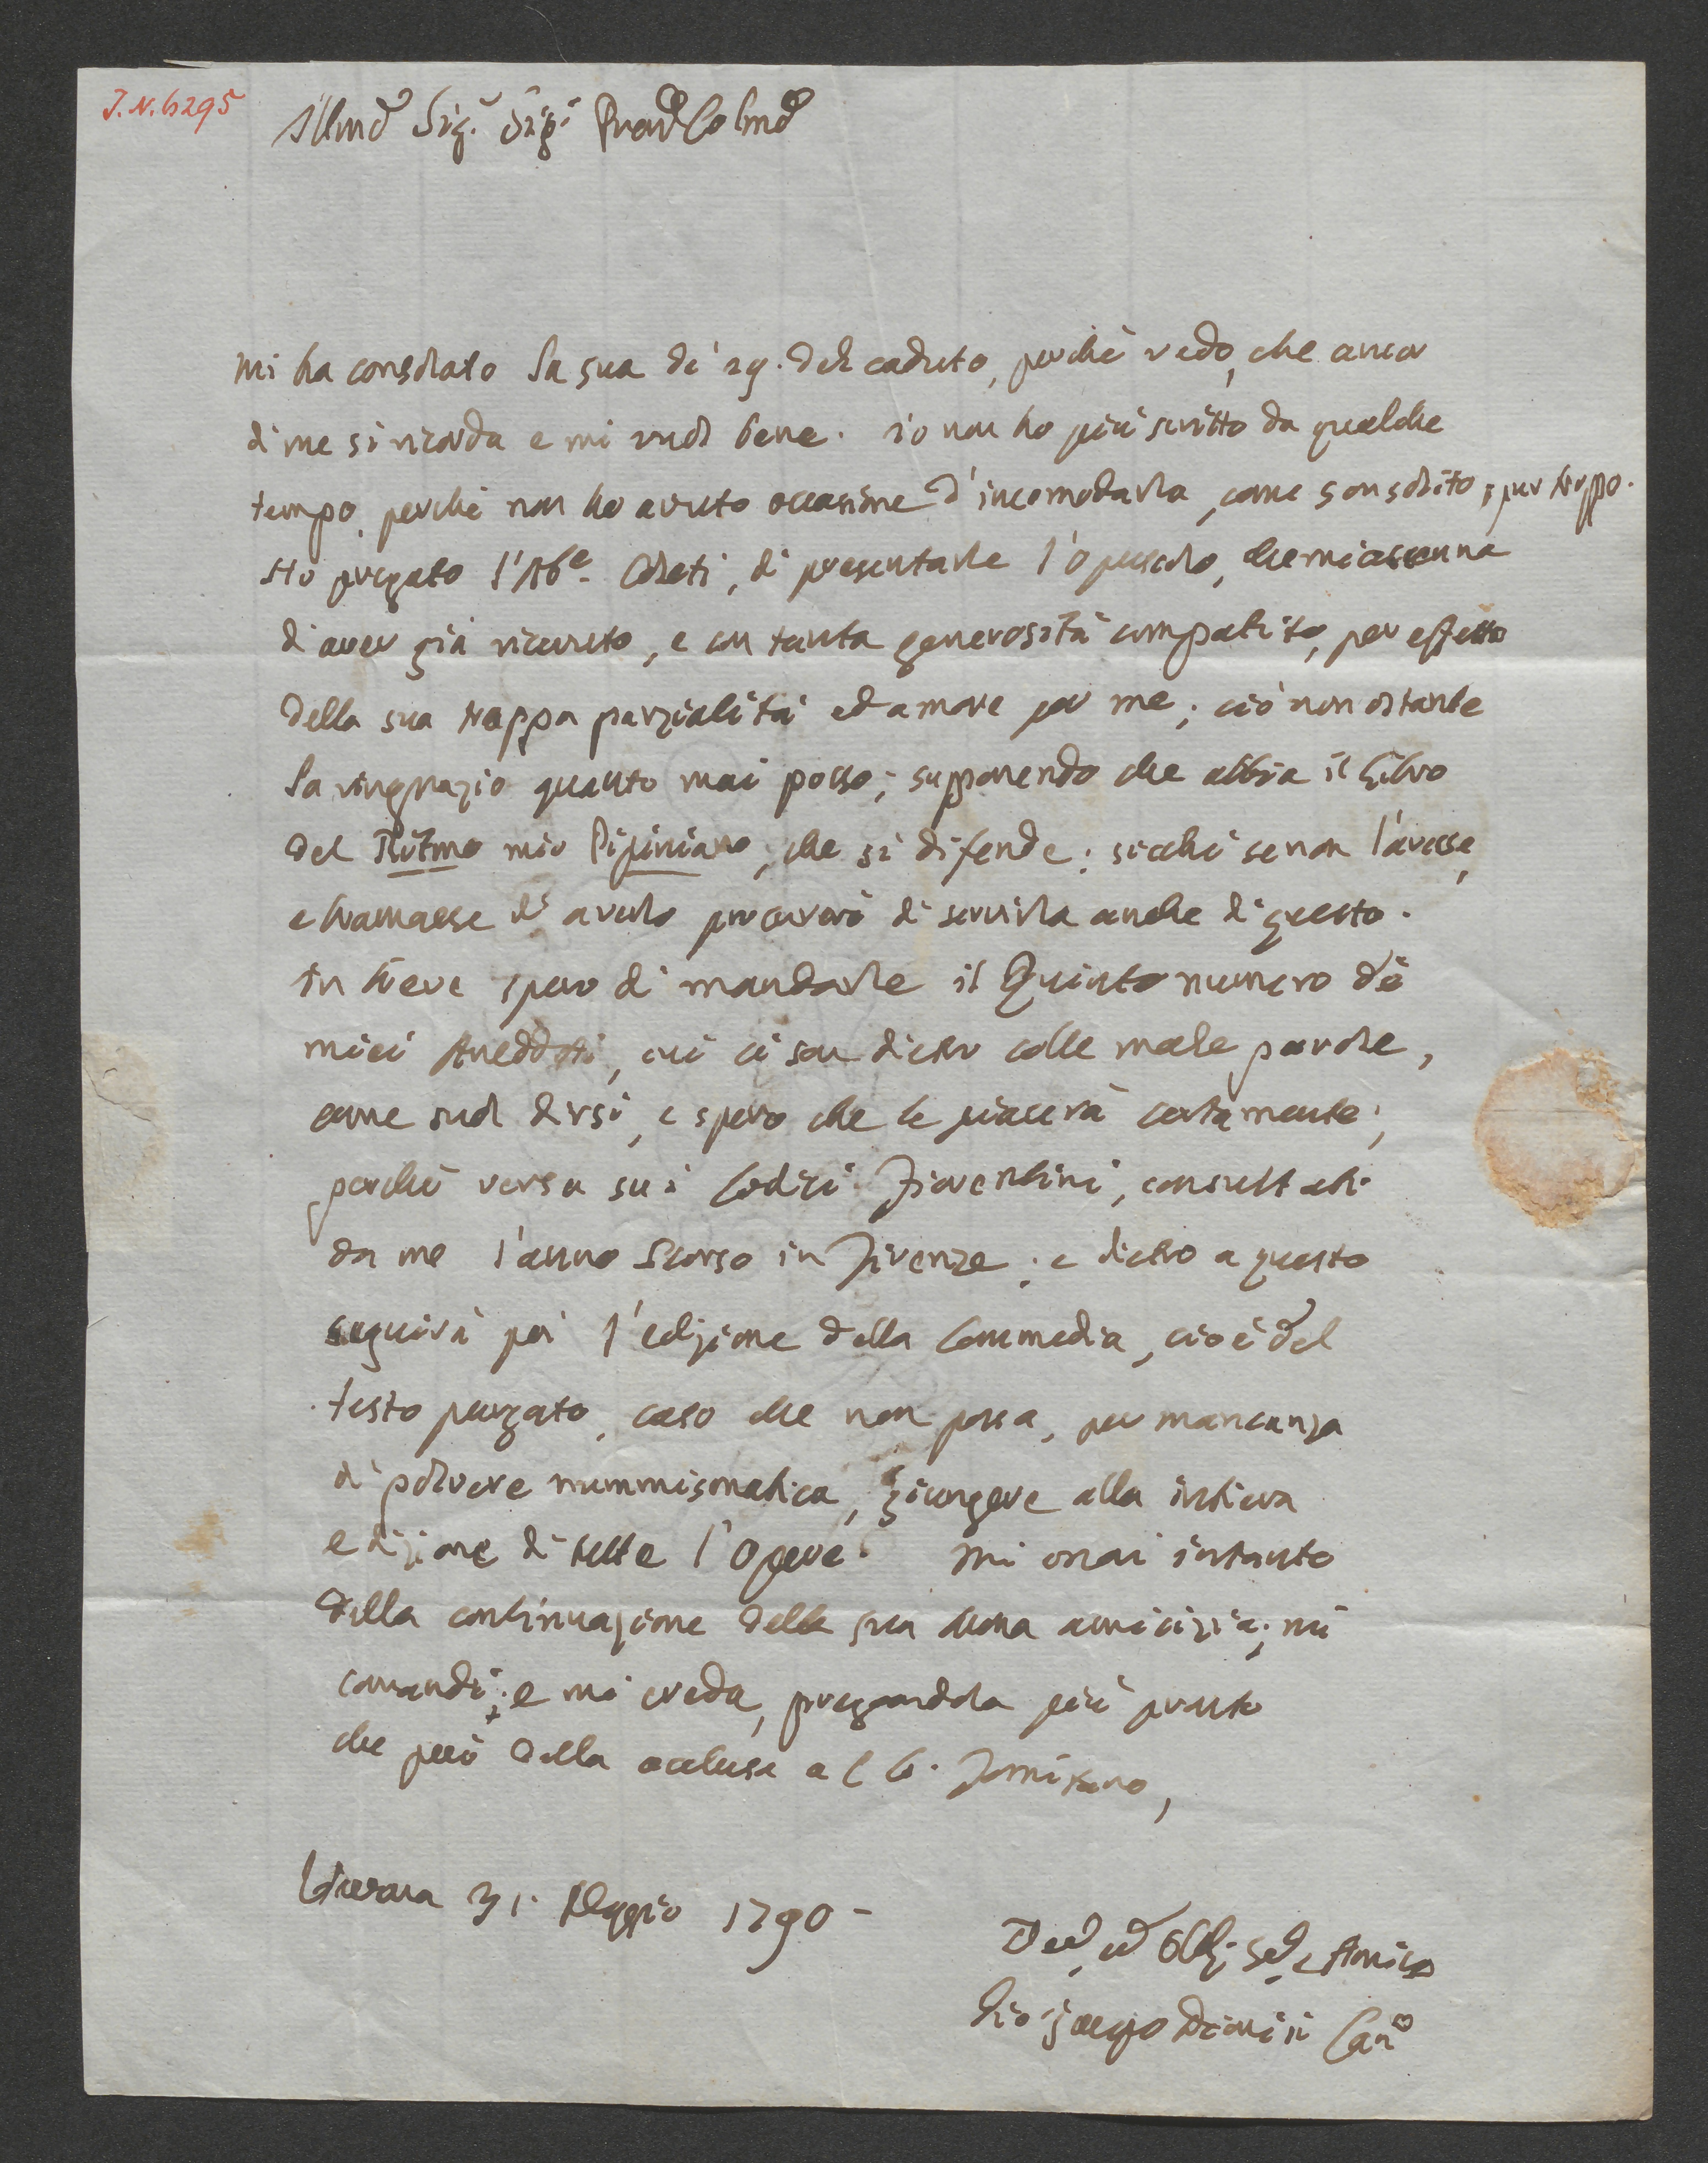 J.N. 6295
Illmo Sig. Sig. Pron Colmo
Mi ha consolato la sua de' 29. del caduto, perchè vedo, che ancor
di me si ricorda e mi vuol bene. Io non ho più scritto da qualche
tempo, perchè non ho avuto occasione d'incomodarla, come son solito, pur troppo.
Ho pregato l'Abe. Coleti, di presentarle l'opuscolo, che mi accenna
di aver già ricevuto, e con tanta generosità compatito, per effetto
della sua troppa parzialità ed amore per me; ciò non ostante
la ringrazio quanto mai posso; supponendo che abbia il Libro
del Ritmo mio Pipiniano, che si difende; sicchè se non l'avesse,
e bramasse d'averlo procurerò di servirla anche di questo.
In breve spero di mandarle il Quinto numero de'
miei Aneddoti, cui ci son dietro colle male parole,
come suol dirsi, e spero che le piacerà certamente;
perchè versa sui Codici Fiorentini, consultati
da me l'anno scorso in Firenze; e dietro a questo
seguirà poi l'edizione della Commedia, cioè del
testo purgato, caso che non possa, per mancanza
di polvere nummismatica, giungere alla intiera
edizione di tutte l'Opere. Mi onori intanto
della continuazione della sua buona amicizia; mi
comandi; e mi creda, pregandola più presto
che può della acclusa al C. Tomitano,
Verona 31. Maggio 1790-
Devo ed Obb. Se. e Amico
Gio Jacopo Dionisi Cano